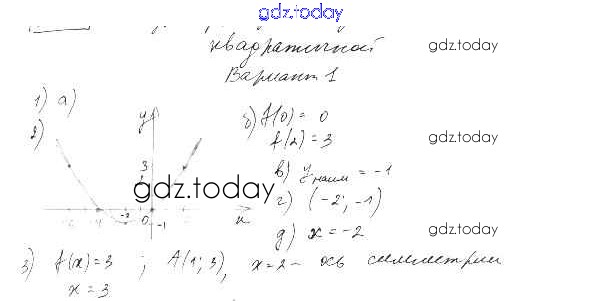 gdz.today
квадратичной gdz.today
Вариант 1
1) а)
2) y б) f(0) = 0 gdz.today
f(2) = 3
3 в) y наим = -1
1
gdz.today г) (-2; -1)
-6 -4 -2 0 -1 x
д) x = -2 gdz.today
3) f(x) = 3 ; A(1; 3), x = 2 - ось симметрии
x = 3 gdz.today